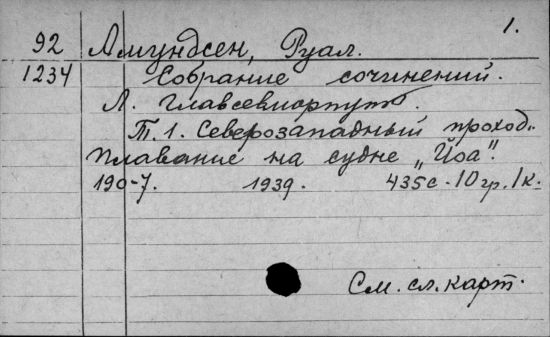 1.
92 Амундсен, Руал.
1234 Собрание сочинений.
Л. Главсевморпути.
Т. 1. Северозападный проход.
Плавание на судне „Йоа".
190-7. 1939. 435 с. 10 гр. 1 к.
См. сл. карт.